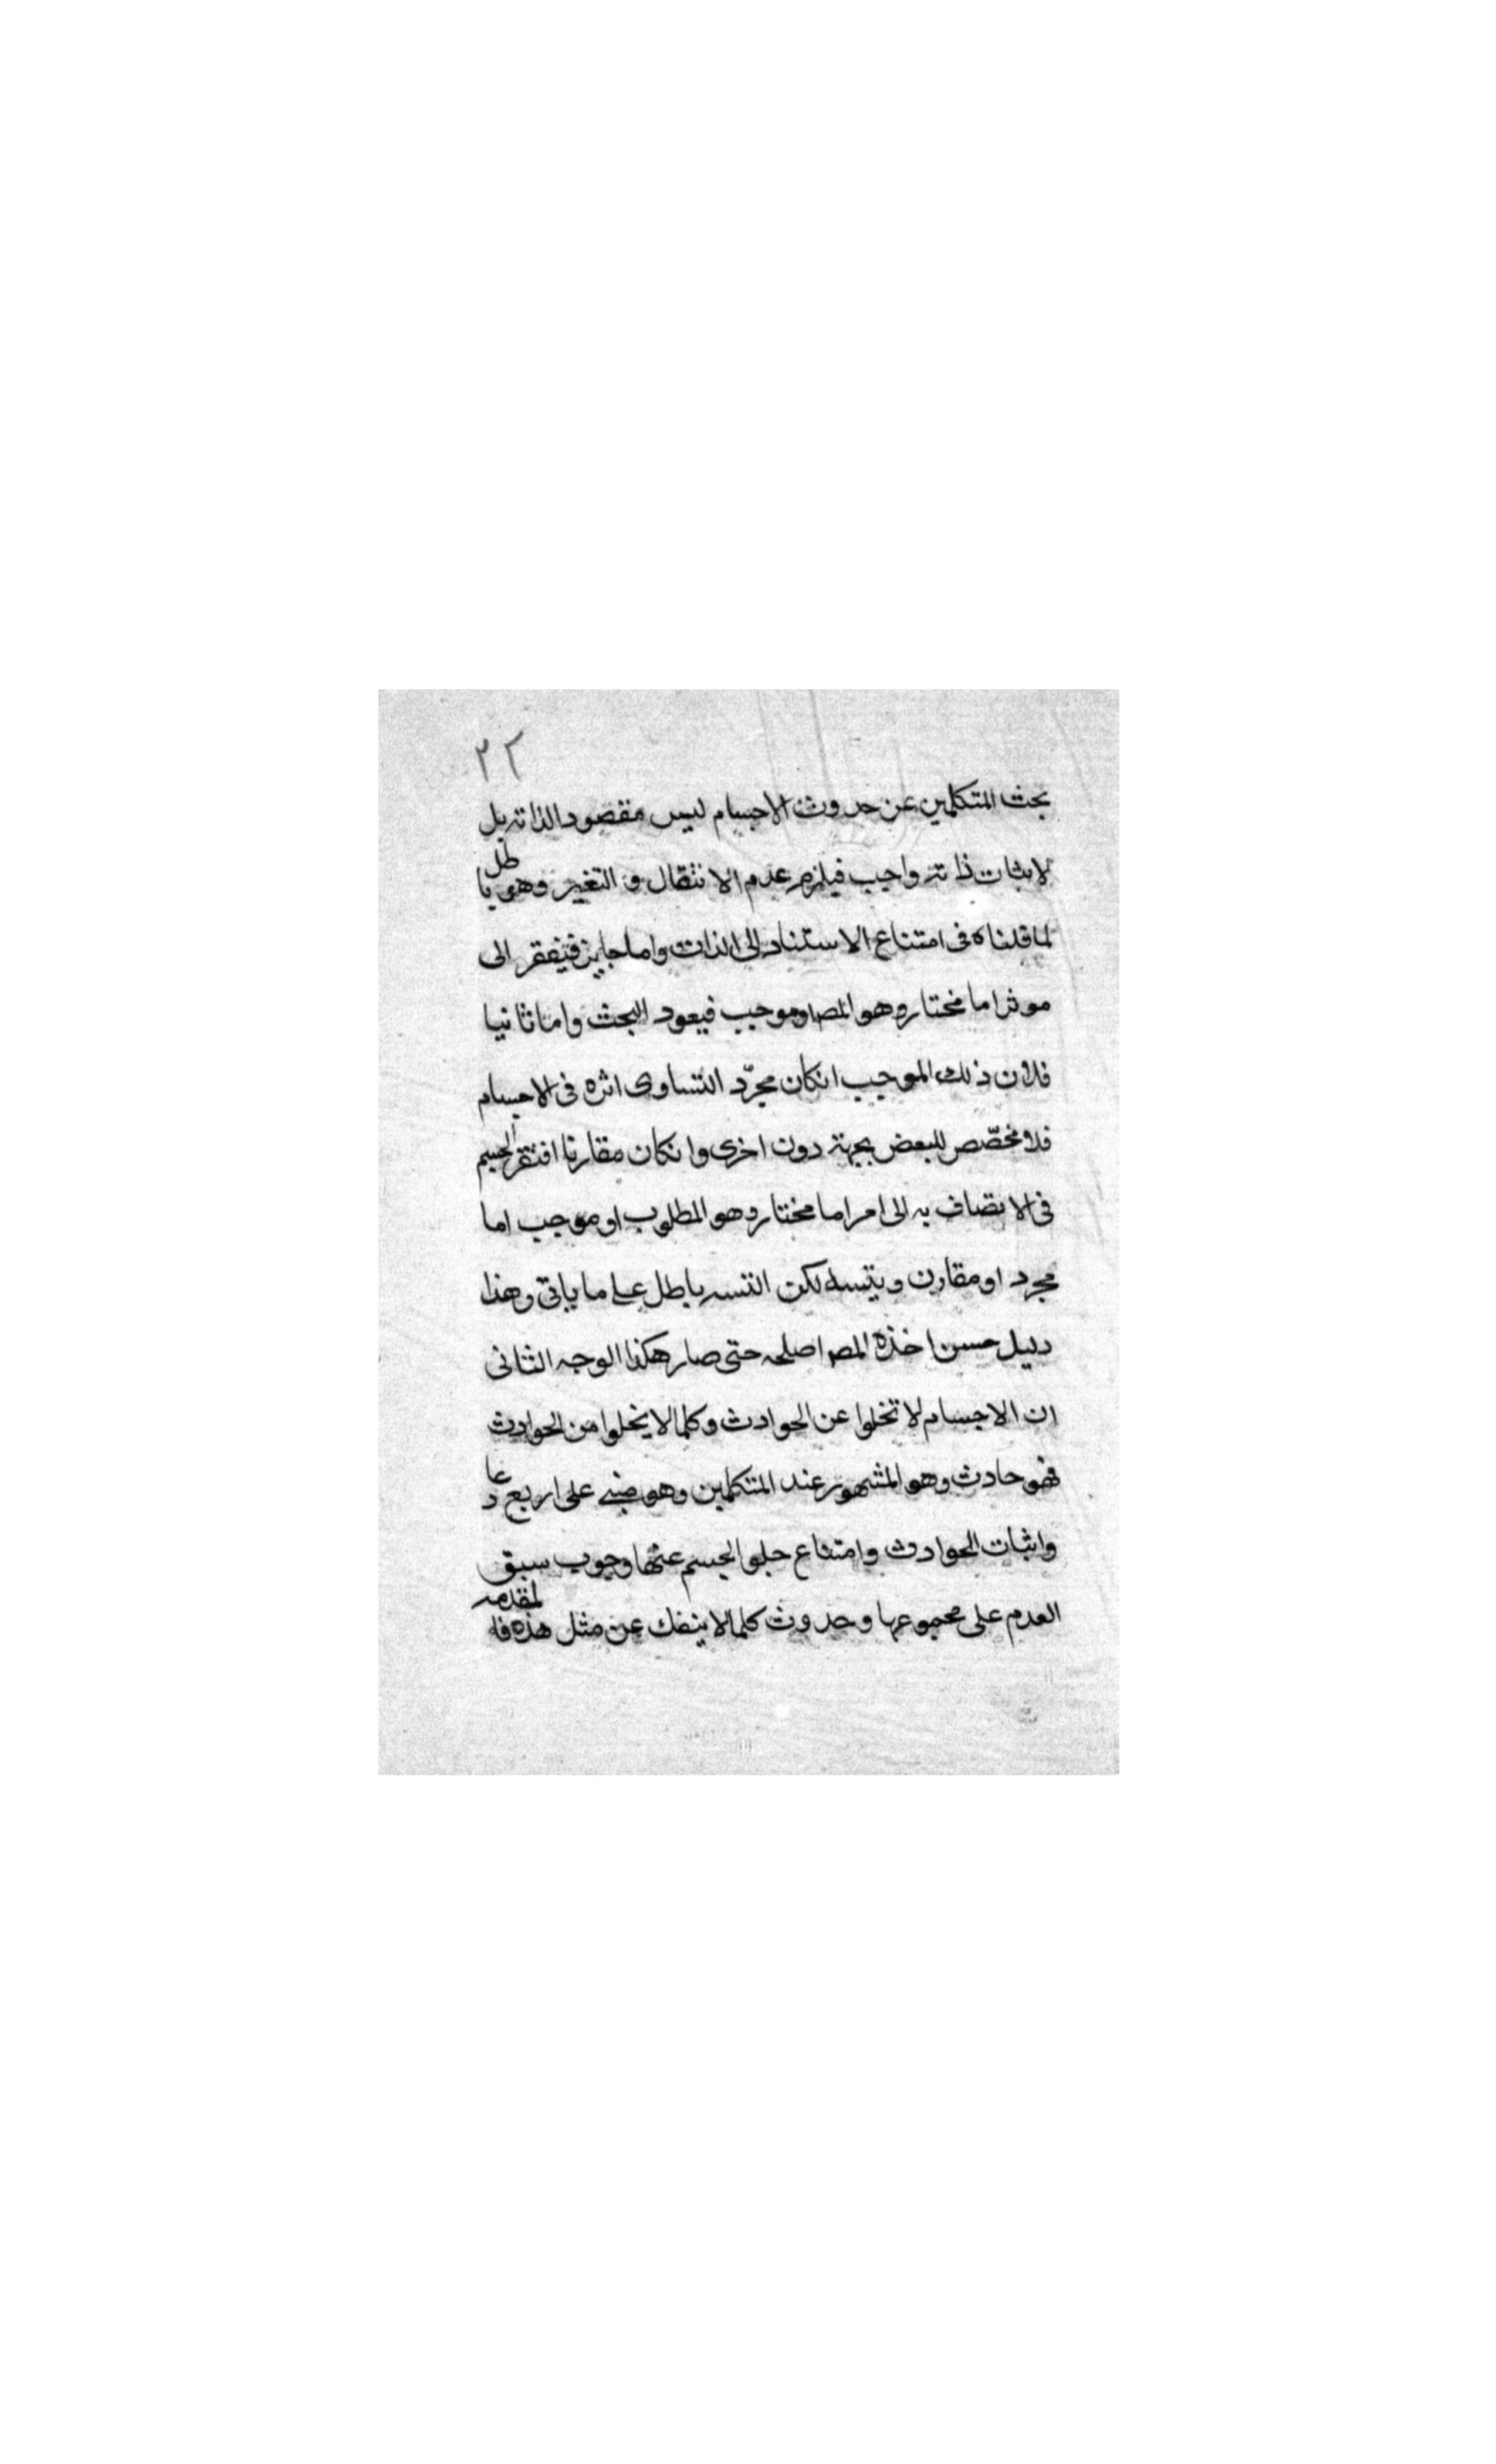 ٢٢
بحث المتكلمين عن حدوث الاجسام ليس مقصود الذاته بل
لاثبات ذاته واجب فيلزم عدم الانتقال و التغير وهو باطل
لما قلناه فى امتناع الاستناد الى الذات واما جايز فيفقر الى
موثر اما مختار وهو المص اوموجب فيعود البحث واما ثانيا
فلان ذلك الموجب انكان مجرّد التساوى اثره فى الاجسام
فلا مخصّص للبعض بجهة دون اخرى وانكان مقارنا افتقر الجسم
فى الاتصاف به الى امر اما مختار وهو المطلوب او موجب اما
مجرد او مقارن ويتسلـه لكن التسـه باطل على ما ياتى وهذا
دليل حسن اخذه المص اصلحه حتى صار هكذا الوجه الثانى
ان الاجسام لا تخلوا عن الحوادث وكلما لا يخلوا من الحوادث
فهو حادث وهو المشهور عند المتكلمين وهو مبنى على اربع دعا
واثبات الحوادث وامتناع خلو الجسم عنها وجوب سبق
العدم على مجموعها وحدوث كلما لا ينفك عن مثل هذه فا لمقدمه